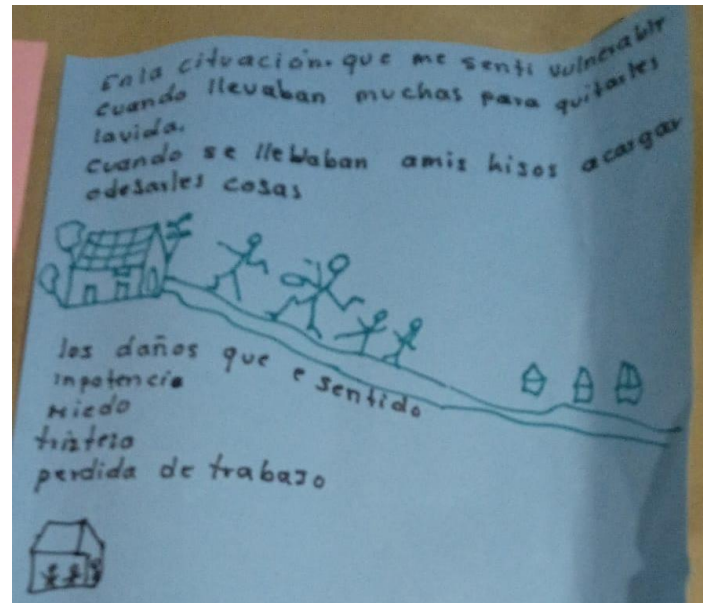 En la cituación. que me senti vulnerable
cuando llevaban muchas para quitarles
lavida.
cuando se llebaban amis hisos acargar
odesarles cosas
los daños que e sentido
inpotencia
Miedo
tristeza
perdida de trabajo